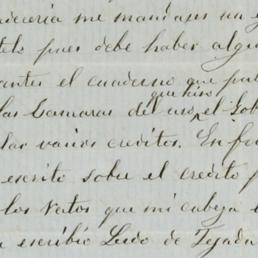 deceria me mandases un e
telo pues debe haber algun
antes el cuaderno que pub
que hiso
las Camaras del uso el Gob
lar varios creditos. En fin
escrito sobre el credito p
los datos que mi cabeza
a escribió Lerdo de Tejada